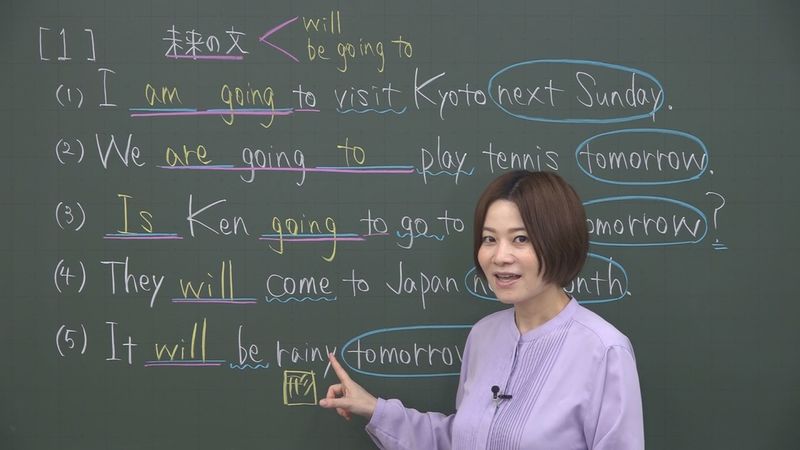 [1] 未来の文 will
be going to
(1) I am going to visit Kyoto next Sunday.
(2) We are going to play tennis tomorrow.
(3) Is Ken going to go to tomorrow?
(4) They will come to Japan
(5) It will be rainy tomorrow